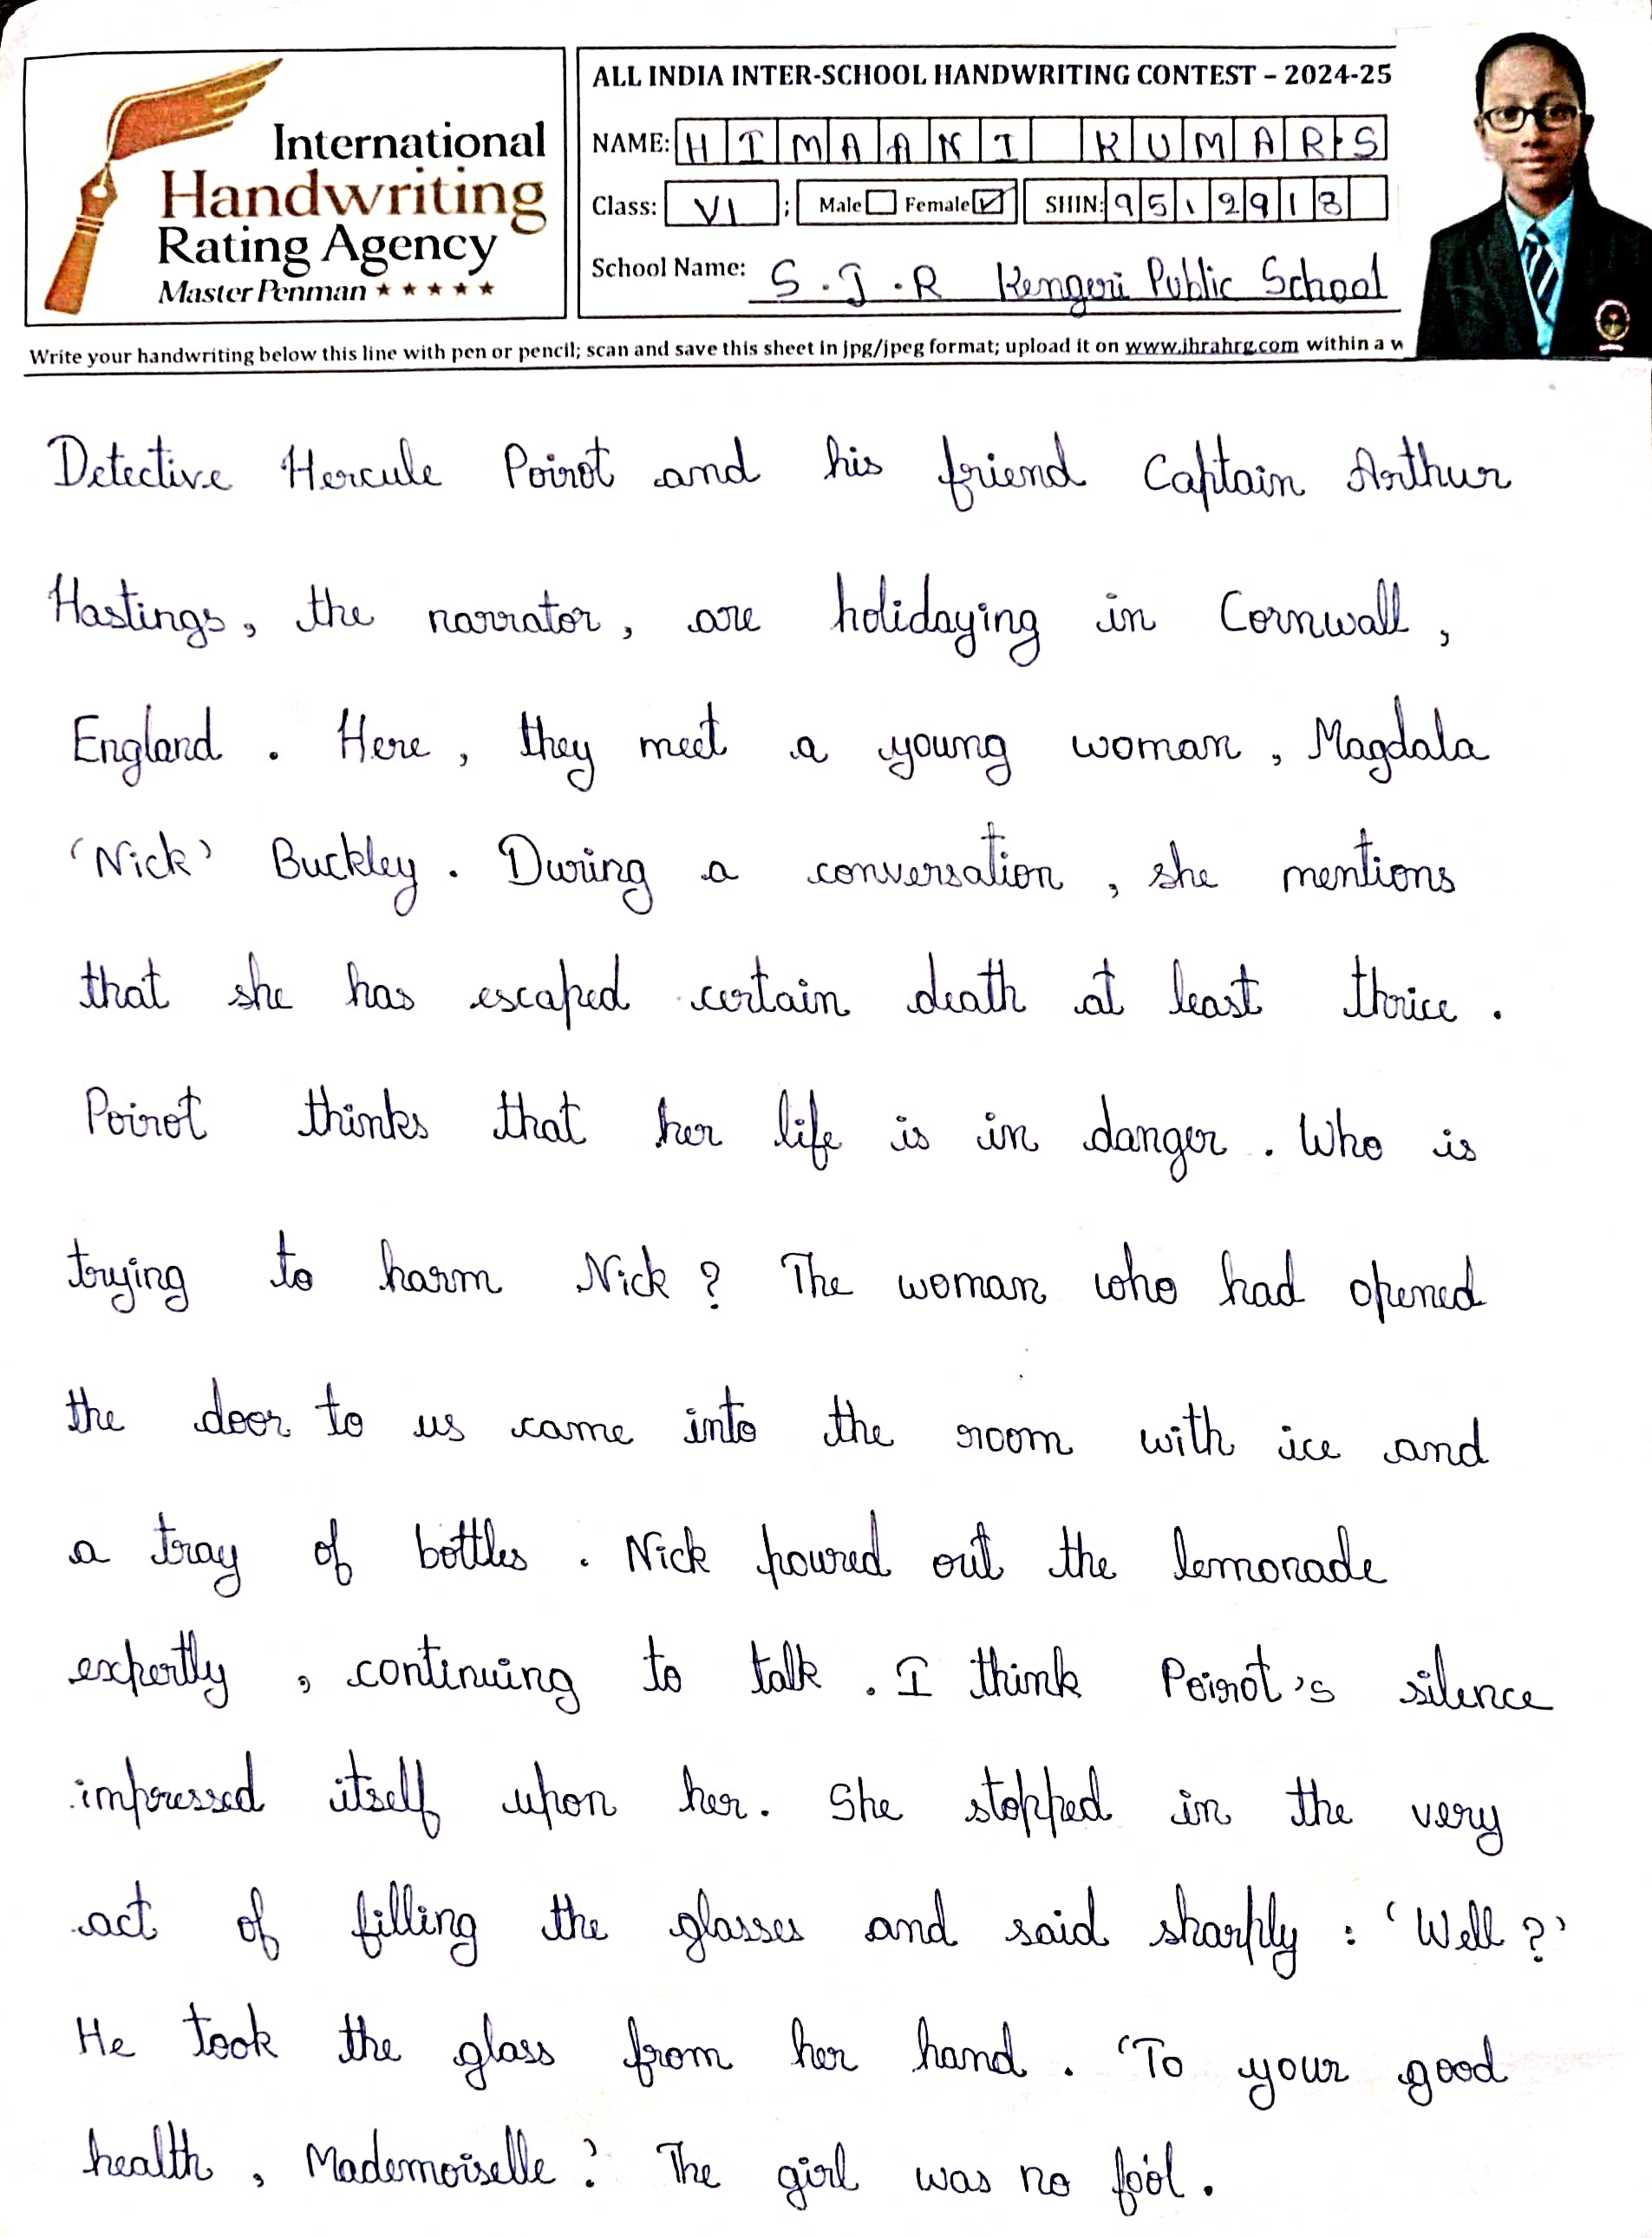 International
Handwriting
Rating Agency
Master Penman ★ ★ ★ ★ ★
ALL INDIA INTER-SCHOOL HANDWRITING CONTEST – 2024-25
NAME: HIMAANI KUMAR.S
Class: VI ; Male Female SHIN: 9512918
School Name: S.J.R Kengeri Public School
Write your handwriting below this line with pen or pencil; scan and save this sheet in jpg/jpeg format; upload it on www.ihrahrg.com within a w
Detective Hercule Poirot and his friend Captain Arthur
Hastings, the narrator, are holidaying in Cornwall,
England. Here, they meet a young woman, Magdala
'Nick' Buckley. During a conversation, she mentions
that she has escaped certain death at least thrice.
Poirot thinks that her life is in danger. Who is
trying to harm Nick? The woman who had opened
the door to us came into the room with ice and
a tray of bottles. Nick poured out the lemonade
expertly, continuing to talk. I think Poirot's silence
impressed itself upon her. She stopped in the very
act of filling the glasses and said sharply: 'Well?'
He took the glass from her hand. 'To your good
health, Mademoiselle.' The girl was no fool.